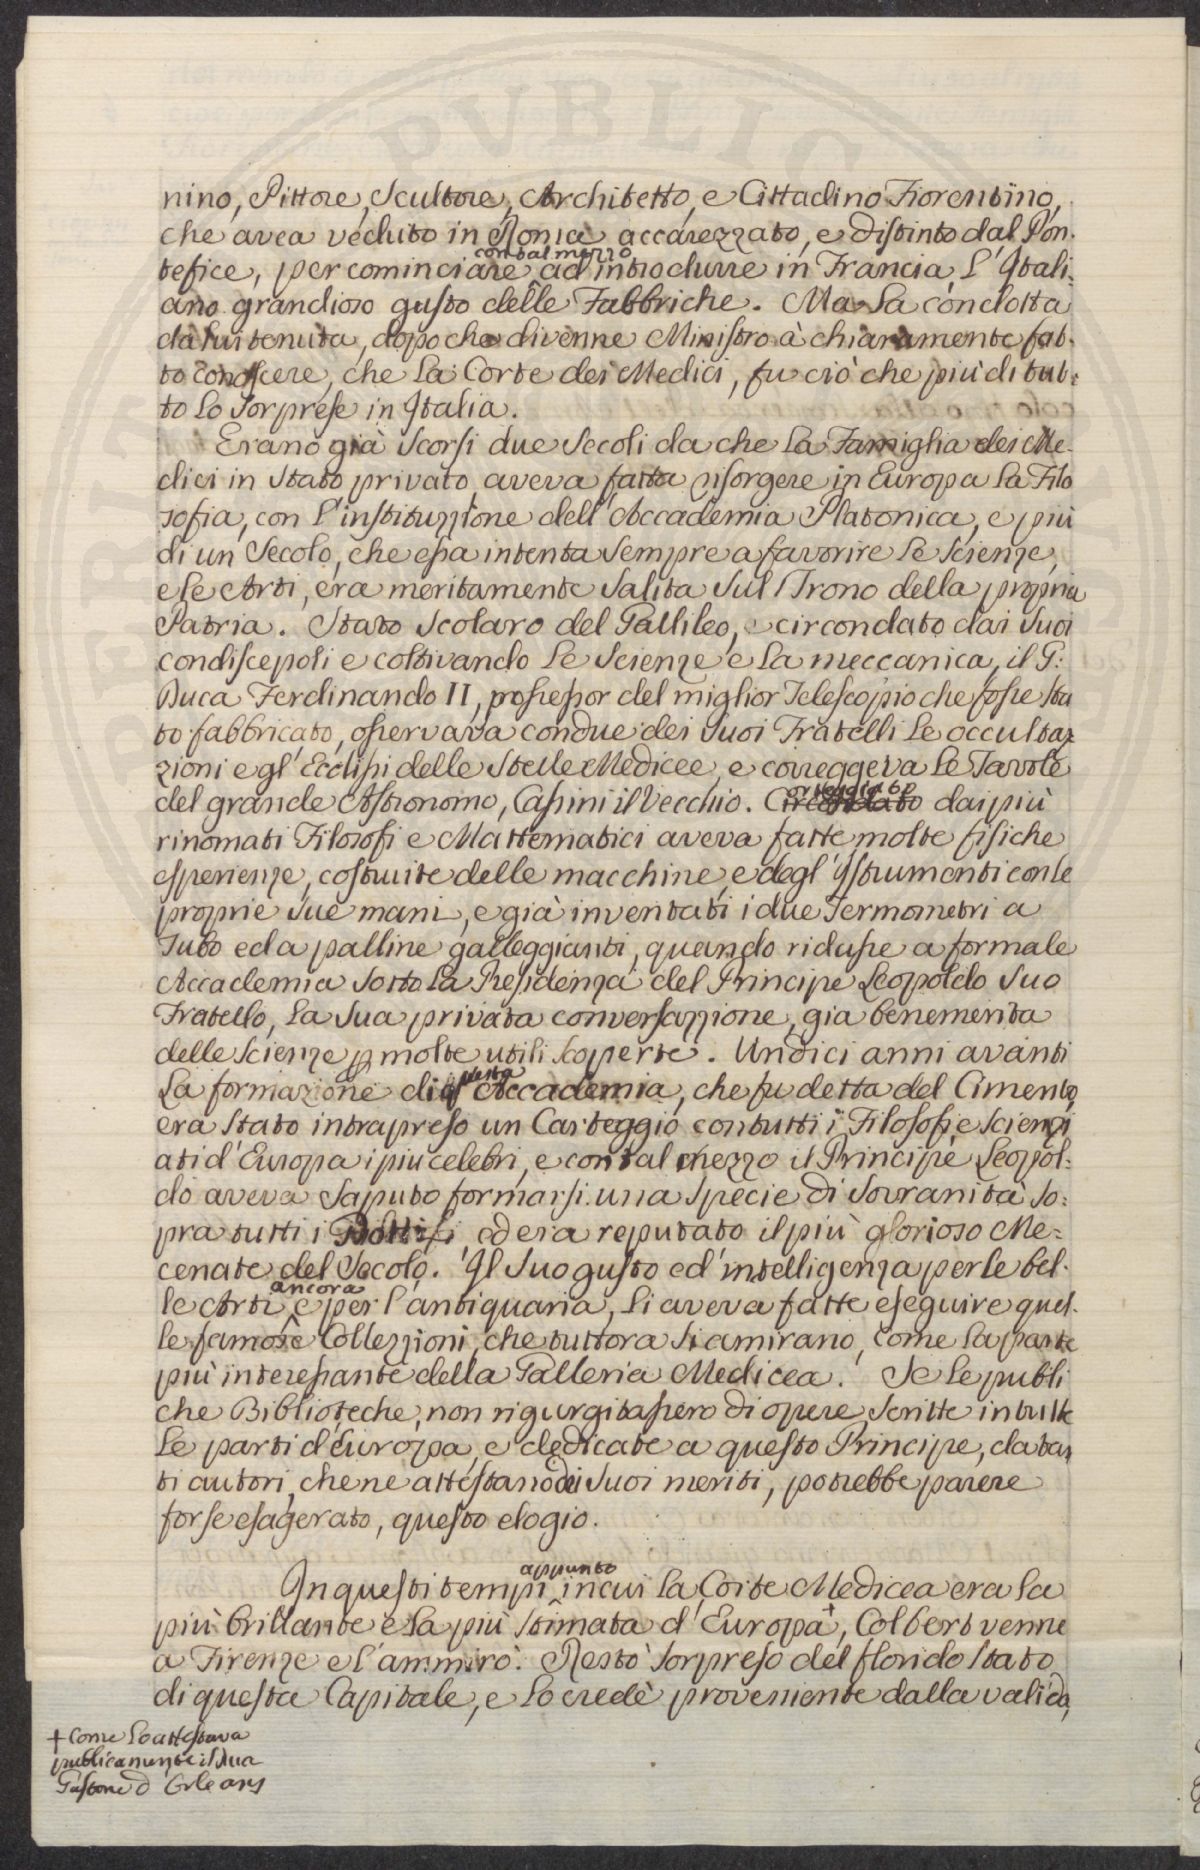 nino, Pittore, Scultore, Architetto, e Cittadino Fiorentino,
che avea veduto in Roma accarezzato, e distinto dal Pon-
con tal mezzo
tefice, per cominciare ad introdurre in Francia l'Itali-
ano grandioso gusto delle Fabbriche. Ma la condotta
da lui tenuta, dopo che divenne Ministro à chiaramente fat-
to conoscere, che la Corte dei Medici, fu ciò che più di tut-
to lo sorprese in Italia.
Erano già scorsi due secoli da che la Famiglia dei Me-
dici in stato privato aveva fatta risorgere in Europa la Filo
sofia, con l'instituzzione dell'Accademia Platonica, e più
di un Secolo, che essa intenta sempre a favorire le scienze,
e le Arti, era meritamente salita sul Trono della propria
Patria. Stato scolaro del Gallileo, e circondato dai suoi
condiscepoli e coltivando le scienze e la meccanica, il G:
Duca Ferdinando II, possessor del miglior Telescopio che fosse sta
to fabbricato, osservava con due dei suoi Fratelli le occultaz
zioni e gl'Ecclissi delle Stelle Medicee, e correggeva le Tavole
del grande Astronomo, Cassini il Vecchio. Circondato dai più
rinomati Filosofi e Mattematici aveva fatte molte fisiche
esperienze, costruite delle macchine, e degl'Istrumenti con le
proprie sue mani, e già inventati i due Termometri a
Tubo ed a palline galleggianti, quando ridusse a formale
Accademia sotto la Presidenza del Principe Leopoldo suo
Fratello, la sua privata conversazzione, gia benemerita
delle scienze p molte utili scoperte. Undici anni avanti
la formazione di questa Accademia, che fu detta del Cimento,
era stato intrapreso un Carteggio con tutti i Filosofi e scienzi
ati d'Europa i più celebri, e con tal mezzo il Principe Leopol-
do aveva saputo formarsi una specie di sovranità so-
pra tutti i Dotti, ed era reputato il più glorioso Me-
cenate del Secolo. Il suo gusto ed intelligenza per le bel-
ancora
le Arti e per l'antiquaria, li aveva fatte eseguire quel-
le famose Collezzioni, che tuttora si amirano, come la parte
più interessante della Galleria Medicea. Se le publi
che Biblioteche, non rigurgitassero di opere scritte in tutte
le parti d'Europa, e dedicate a questo Principe, da tan
ti autori, che ne attestano dei suoi meriti, potrebbe parere
forse esagerato, questo elogio.
appunto
In questi tempi in cui la Corte Medicea era la
più brillante e la più stimata d'Europa+, Colbert venne
a Firenze e l'ammirò. Restò sorpreso del florido stato
di questa Capitale, e lo credè proveniente dalla valida,
+ Come lo attestava
publicamente il Duca
Gastone d'Orleans